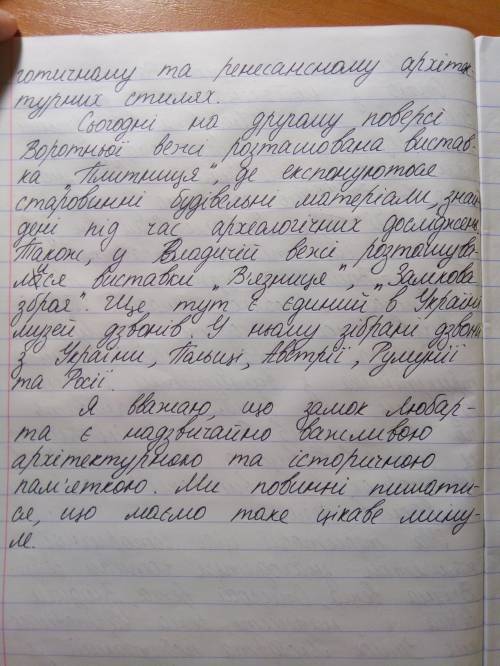 готичному та ренесансному архітек
турних стилях.
Сьогодні на другому поверсі
Воротньої вежі розташована вистав-
ка "Плитниця", де експонуються
старовинні будівельні матеріали, знай
дені під час археологічних досліджень.
Також, у Владичій вежі розташува-
лися виставки "В'язниця", "Замкова
зброя". Ще тут є єдиний в Україні
музей дзвонів. У ньому зібрані дзвони
з України, Польщі, Австрії, Румунії
та Росії.
Я вважаю, що замок Любар-
та є надзвичайно важливою
архітектурною та історичною
пам'яткою. Ми повинні пишати-
ся, що маємо таке цікаве мину-
ле.